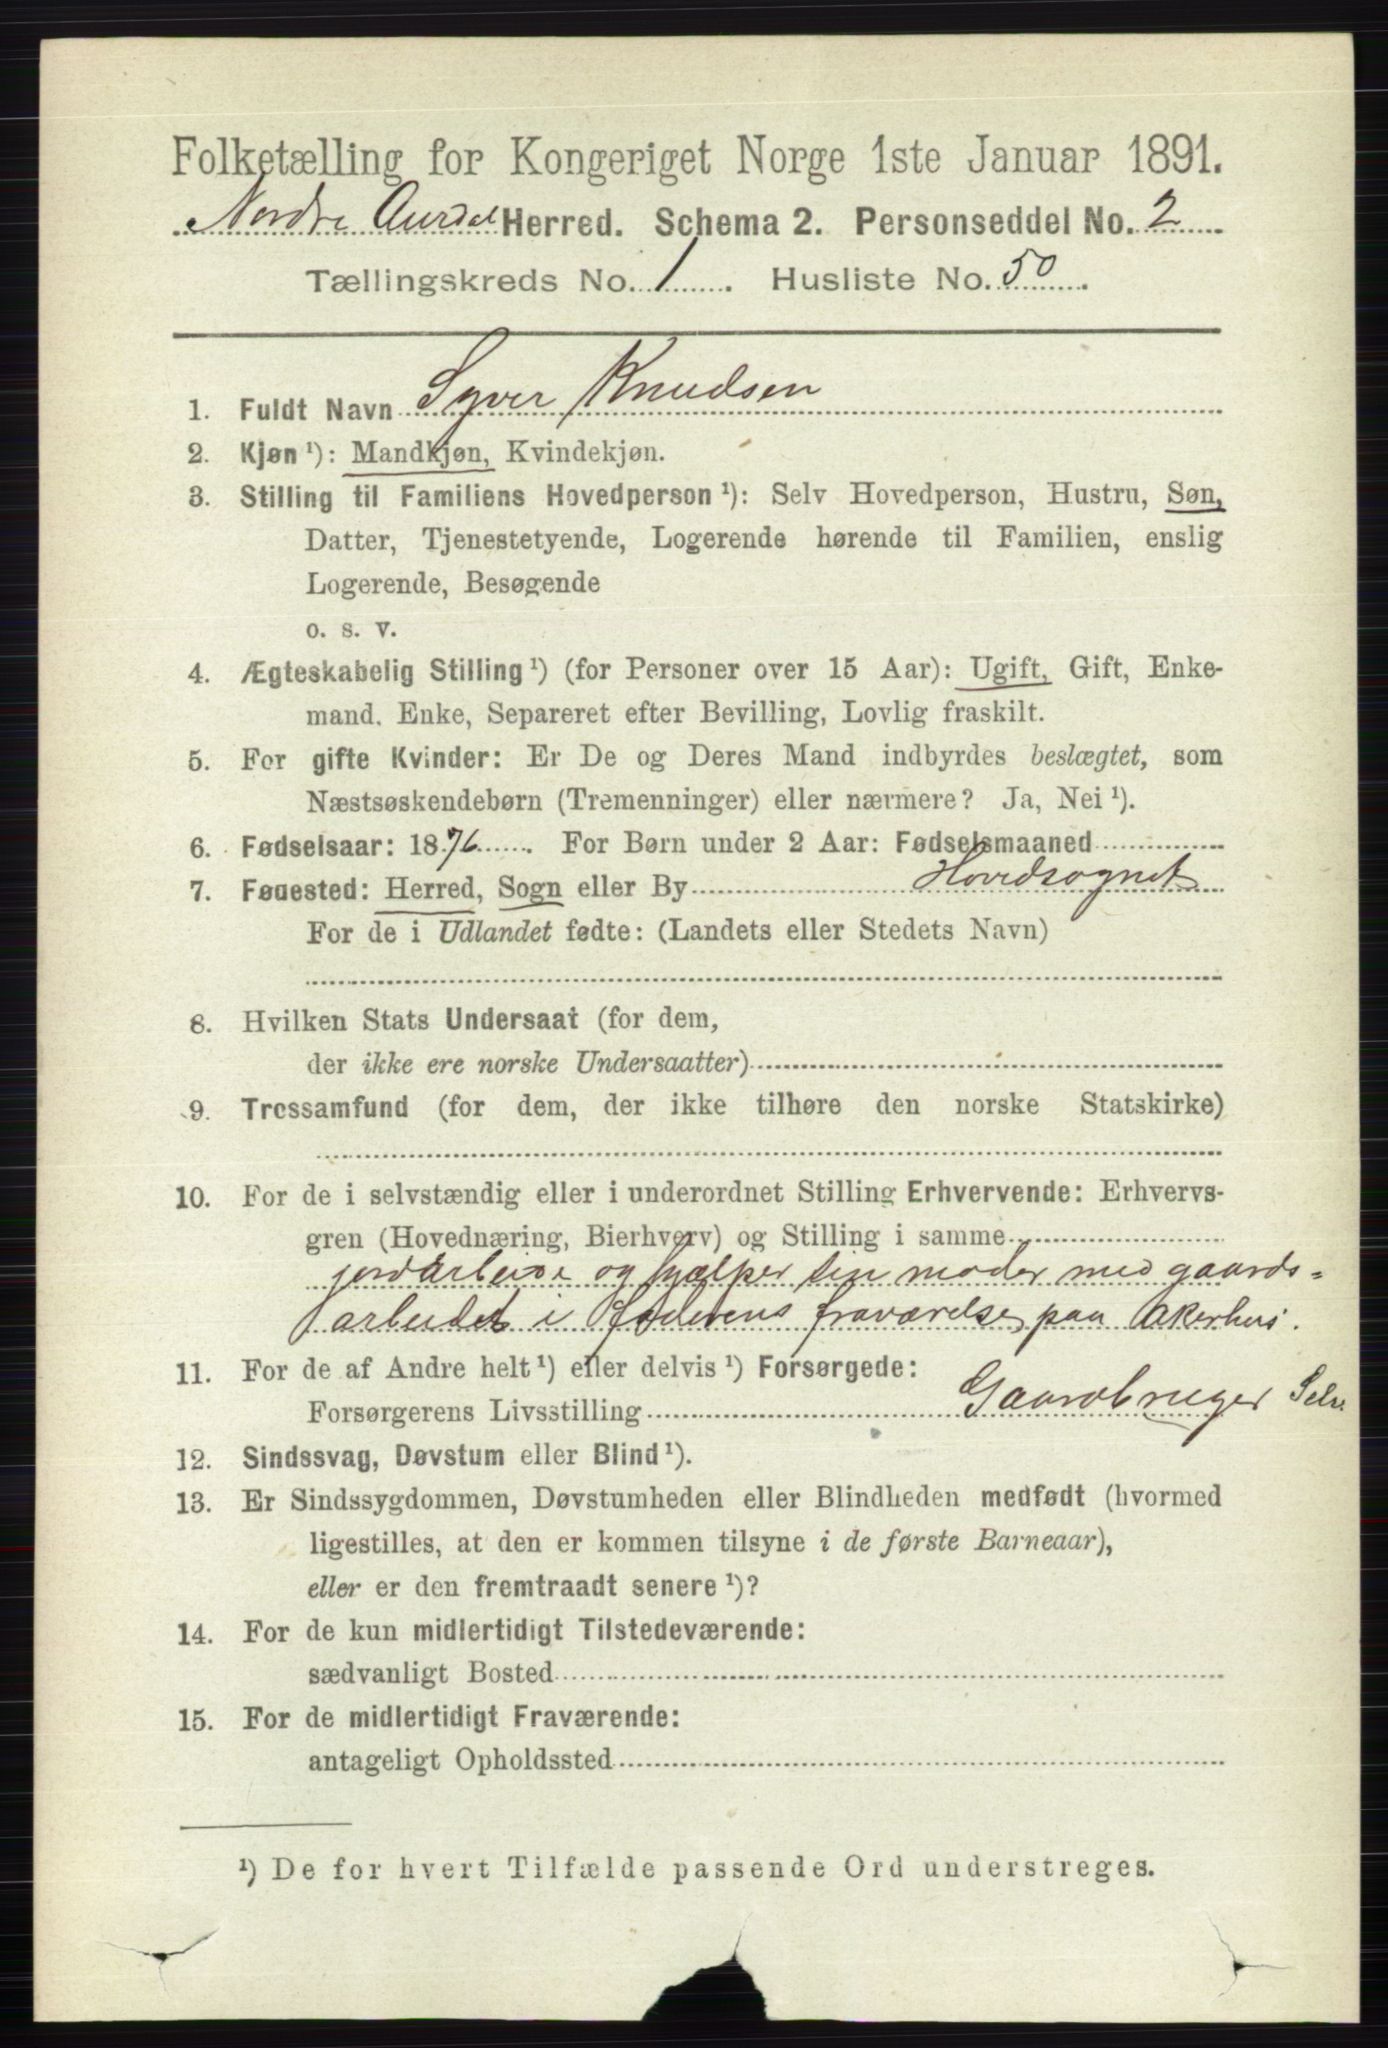 Folketælling for Kongeriget Norge 1ste Januar 1891.
Nordre Aurdal Herred. Schema 2. Personseddel No. 2
Tællingskreds No. 1. Husliste No. 50.
1. Fuldt Navn Syver Knudsen
2. Kjøn ¹): Mandkjøn, Kvindekjøn.
3. Stilling til Familiens Hovedperson ¹): Selv Hovedperson, Hustru, Søn,
Datter, Tjenestetyende, Logerende hørende til Familien, enslig
Logerende, Besøgende
o. s. v.
4. Ægteskabelig Stilling ¹) (for Personer over 15 Aar): Ugift, Gift, Enke-
mand. Enke, Separeret efter Bevilling, Lovlig fraskilt.
5. For gifte Kvinder: Er De og Deres Mand indbyrdes beslægtet, som
Næstsøskendebørn (Tremenninger) eller nærmere? Ja, Nei ¹).
6. Fødselsaar: 1876. For Børn under 2 Aar: Fødselsmaaned
7. Føuested: Herred, Sogn eller By Hovedsognet
For de i Udlandet fødte: (Landets eller Stedets Navn)
8. Hvilken Stats Undersaat (for dem,
der ikke ere norske Undersaatter)
9. Trossamfund (for dem, der ikke tilhøre den norske Statskirke)
10. For de i selvstændig eller i underordnet Stilling Erhvervende: Erhvervs-
gren (Hovednæring, Bierhverv) og Stilling i samme
jordarbeide og hjælper sin moder med gaards=
arbeidet i faderens fraværelse paa Akerhus.
11. For de af Andre helt ¹) eller delvis ¹) Forsørgede:
Forsørgerens Livsstilling Gaardbruger Selv.
12. Sindssvag, Døvstum eller Blind ¹).
13. Er Sindssygdommen, Døvstumheden eller Blindheden medfødt (hvormed
ligestilles, at den er kommen tilsyne i de første Barneaar),
eller er den fremtraadt senere ¹)?
14. For de kun midlertidigt Tilstedeværende:
sædvanligt Bosted
15. For de midlertidigt Fraværende:
antageligt Opholdssted
¹) De for hvert Tilfælde passende Ord understreges.